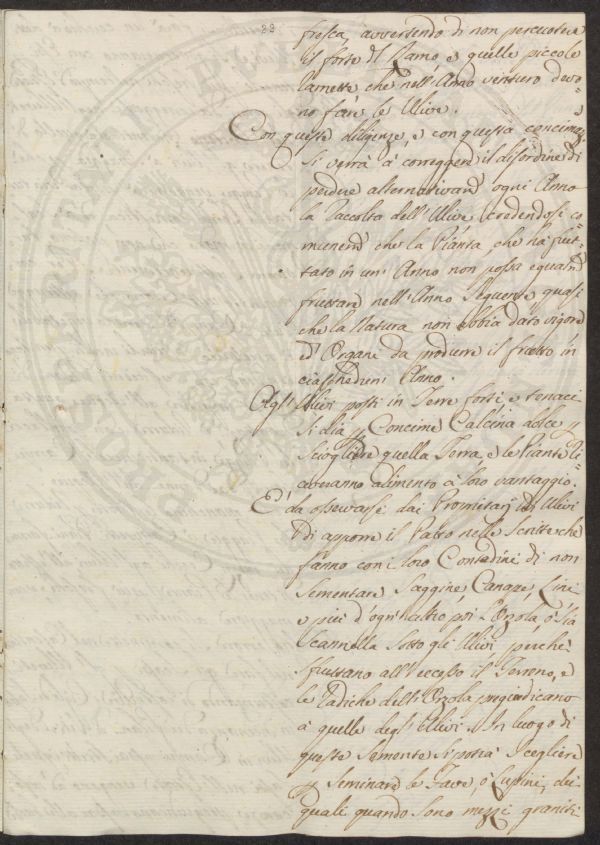 22
fresca, avvertendo di non percuotere
il forte del Ramo, e quelle piccole
ramette che nell'Anno venturo devo=
no fare le Ulive.
Con queste diligenze, e con questa concima=
si verrà à correggere il disordine di
perdere alternativam.e ogni Anno
la Raccolta dell'Ulive credendosi co=
munem.e che la Pianta, che ha frut=
tato in un'Anno non possa egualm.e
fruttare nell'Anno seguente quasi
che la Natura non abbia dato vigore
ed Organi da produrre il frutto in
ciaschedun Anno.
Agl'Ulivi posti in Terre forti e tenaci
si dia p Concime Calcina dolce p
sciogliere quella Terra, e le Piante ri=
caveranno alimento à loro vantaggio.
E' da osservarsi dai Proprietarj di Ulivi
di apporre il Patto nelle Scritte che
fanno con i loro Contadini di non
sementare Saggine, Canape, Lini
e più d'ogn'altro poi l'Orzola, ò sia
Scannella sotto gli Ulivi, perchè
sfruttano all'eccesso il Terreno, e
le Radiche dell'Orzola pregiudicano
à quelle degl'Ulivi. In luogo di
queste Semente si potrà scegliere
p Seminare le Fave, ò Lupini, dei
quali quando sono mezzi graniti